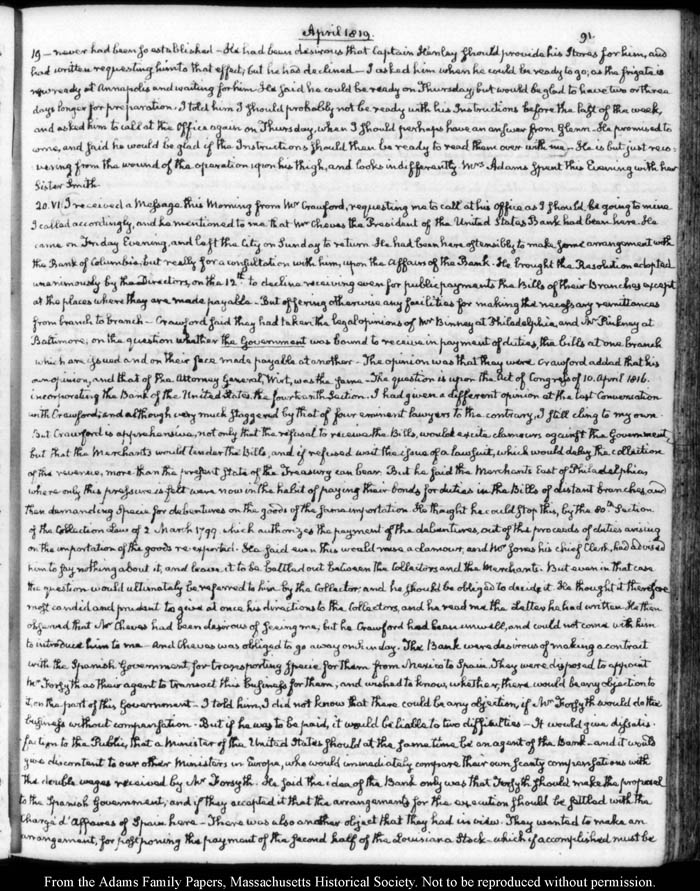 April 1819.
91.
19 — never had been so established — He had been desirous that Captain Henley should provide his Stores for him, and
had written requesting him to that effect; but he had declined — I asked him when he could be ready to go; as the frigate is
now ready at Annapolis and waiting for him. He said he could be ready on Thursday, but would be glad to have two or three
days longer for preparation. I told him I should probably not be ready with his Instructions before the last of the week,
and asked him to call at the Office again on Thursday, when I should perhaps have an answer from Glenn. He promised to
come, and said he would be glad if the Instructions should then be ready to read them over with me — He is but just reco-
vering from the wound of the operation upon his thigh, and looks indifferently. Mrs Adams spent this Evening with her
Sister Smith.
20. VI. I received a Message this Morning from Mr Crawford, requesting me to call at his office as I should be going to mine
I called accordingly, and he mentioned to me that Mr Cheves the President of the United States Bank had been here. He
came on Friday Evening, and left the City on Sunday to return. He had been here ostensibly to make some arrangement with
the Bank of Columbia, but really for a consultation with him, upon the Affairs of the Bank. He brought the Resolution adopted
unanimously by the Directors, on the 12th to decline receiving even for public payments the Bills of their Branches except
at the places where they are made payable — But offering otherwise any facilities for making the necessary remittances
from branch to branch — Crawford said they had taken the legal opinions of Mr Binney at Philadelphia, and Mr Pinkney at
Baltimore, on the question whether the Government was bound to receive in payment of duties, the bills at one branch
which are issued and on their face made payable at another — The opinion was that they were. Crawford added that his
own opinion, and that of the Attorney General, Wirt, was the same — The question is upon the Act of Congress of 10. April 1816.
incorporating the Bank of the United States the fourteenth Section. I had given a different opinion at the last Conversation
with Crawford; and although very much staggered by that of four eminent lawyers to the contrary, I still cling to my own.
But Crawford is apprehensive, not only that the refusal to receive the Bills, would excite clamours against the Government,
but that the Merchants would tender the Bills, and if refused wait the issue of a lawsuit, which would delay the collection
of the revenue, more than the present State of the Treasury can bear. But he said the Merchants East of Philadelphia,
where only this pressure is felt were now in the habit of paying their bonds for duties in the Bills of distant branches and
then demanding Specie for debentures on the goods of the same importation. He thought he could stop this, by the 80th Section
of the Collection Law of 2 March 1799 which authorizes the payment of the debentures, out of the proceeds of duties arising
on the importation of the goods re-exported. He said even this would raise a clamour, and Mr Jones his chief Clerk, had advised
him to say nothing about it, and leave it to be battled out between the Collectors and the Merchants. But even in that case
the question would ultimately be referred to him by the Collector; and he should be obliged to decide it. He thought it therefore
most candid and prudent to give at once his directions to the Collectors, and he read me the Letter he had written. He then
observed that Mr Cheves had been desirous of seeing me, but he Crawford had been unwell, and could not come with him
to introduce him to me — And Cheves was obliged to go away on Sunday. The Bank were desirous of making a contract
with the Spanish Government for transporting Specie for them from Mexico to Spain. They were disposed to appoint
Mr Forsyth as their agent to transact this business for them, and wished to know, whether, there would be any objection to
it, on the part of this Government — I told him, I did not know that there could be any objection, if Mr Forsyth would do the
business without compensation. But if he was to be paid, it would be liable to two difficulties — It would give dissatis-
faction to the Public, that a Minister of the United States should at the same time be an agent of the Bank — and it would
give discontent to our other Ministers in Europe, who would immediately compare their own scanty compensations with
the double wages received by Mr Forsyth. He said the idea of the Bank only was that Forsyth should make the proposal
to the Spanish Government, and if they accepted it that the arrangements for the execution should be settled with the
Chargé d'Affaires of Spain here — There was also another object that they had in view. They wanted to make an
arrangement, for postponing the payment of the second half of the Louisiana Stock — which if accomplished must be
From the Adams Family Papers, Massachusetts Historical Society. Not to be reproduced without permission.